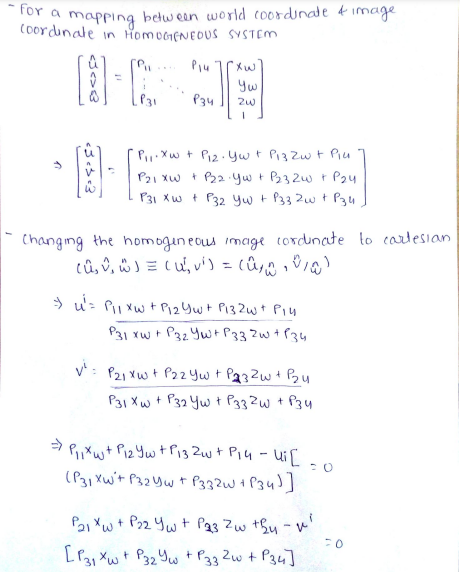 - For a mapping between world coordinate & image
coordinate in HOMOGENEOUS SYSTEM
[û v̂ ŵ] = [P11 ... P14 ⋮ ⋱ P31 P34] [xw yw zw 1]
⇒ [û v̂ ŵ] = [P11·xw + P12·yw + P13 zw + P14
P21 xw + P22·yw + P23 zw + P24
P31 xw + P32 yw + P33 zw + P34]
- Changing the homogineous image cordinate to cartesian
(û, v̂, ŵ) ≡ (u', v') = (û/ŵ, v̂/ŵ)
⇒ uⁱ = P11 xw + P12 yw + P13 zw + P14
P31 xw + P32 yw + P33 zw + P34
vⁱ : P21 xw + P22 yw + P23 zw + P24
P31 xw + P32 yw + P33 zw + P34
⇒ P11 xw + P12 yw + P13 zw + P14 - ui[
(P31 xw + P32 yw + P33 zw + P34)] = 0
P21 xw + P22 yw + P23 zw + P24 - vⁱ
[P31 xw + P32 yw + P33 zw + P34] = 0